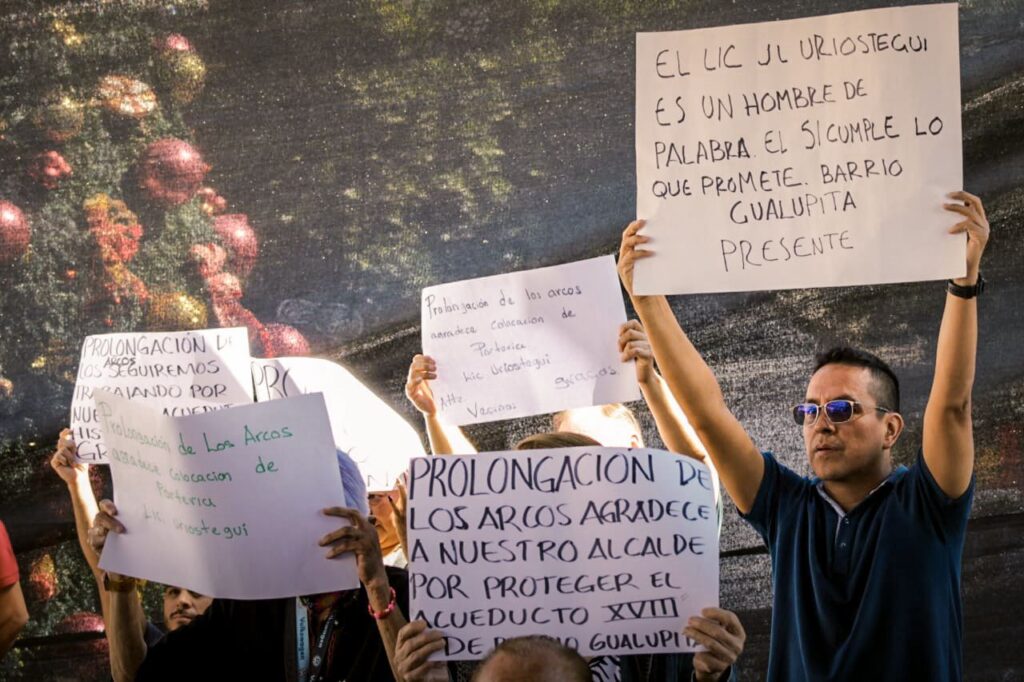 EL LIC JL URIOSTEGUI
ES UN HOMBRE DE
PALABRA. EL SI CUMPLE LO
QUE PROMETE. BARRIO
GUALUPITA
PRESENTE
Prolongación de los arcos
agradece colocacion de
Porterica
Lic. Uriostegui
gracias.
Att.
Vecinos
PROLONGACIÓN DE
LOS ARCOS SEGUIREMOS
TRABAJANDO POR
NUE ACUEDUCTO
HIS
GR
PRO
Prolongación de Los Arcos
agradece colocacion de
Porterica
Lic. uriostegui
PROLONGACION DE
LOS ARCOS AGRADECE
A NUESTRO ALCALDE
POR PROTEGER EL
ACUEDUCTO XVIII
DE GUALUPITA
Volkswagen